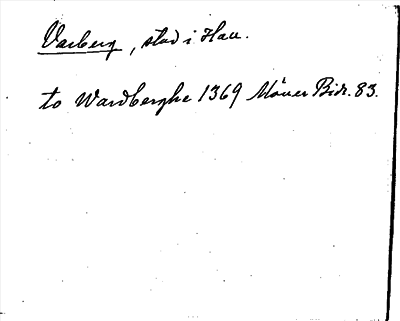 Varberg, stad i Hall.
to Wardberghe 1369 Möller Bidr. 83.